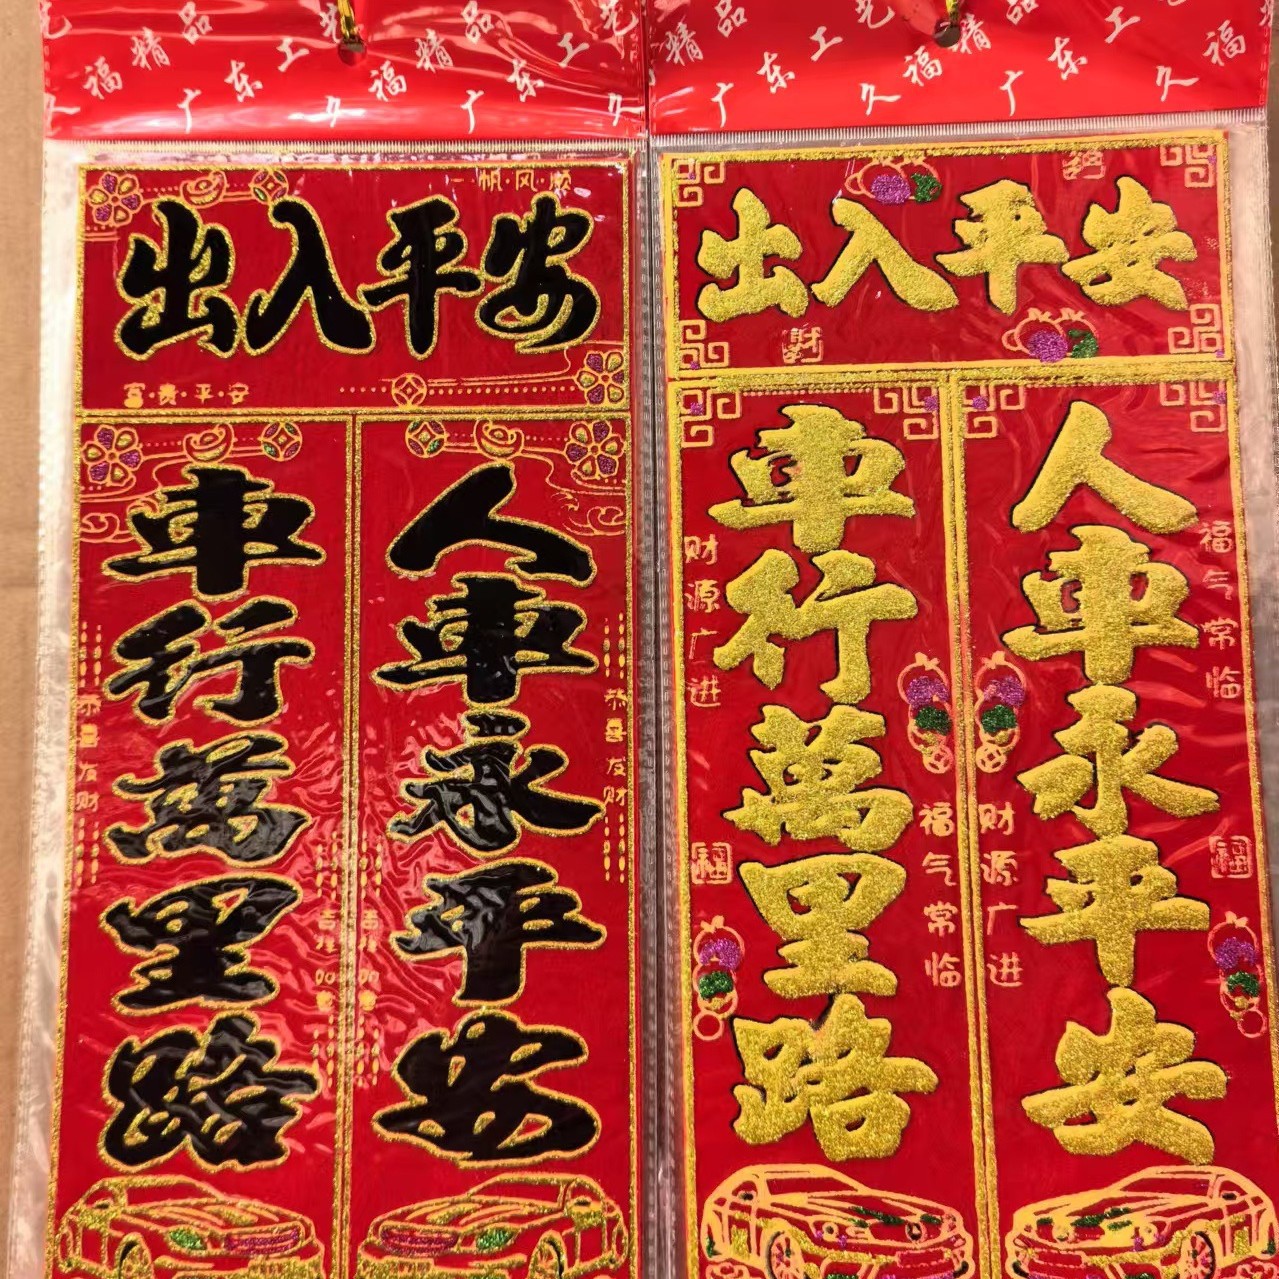 久福精品 广东工艺 久福精品 广东 久
精品 广东工艺 久福精品 广东 久福
一帆风顺
出入平安
富贵平安
車行萬里路
人車永平安
恭喜发财
恭喜发财
吉祥
吉祥
出入平安
財
車行萬里路
人車永平安
财源广进
福气常临
财源广进
福气常临
福
福